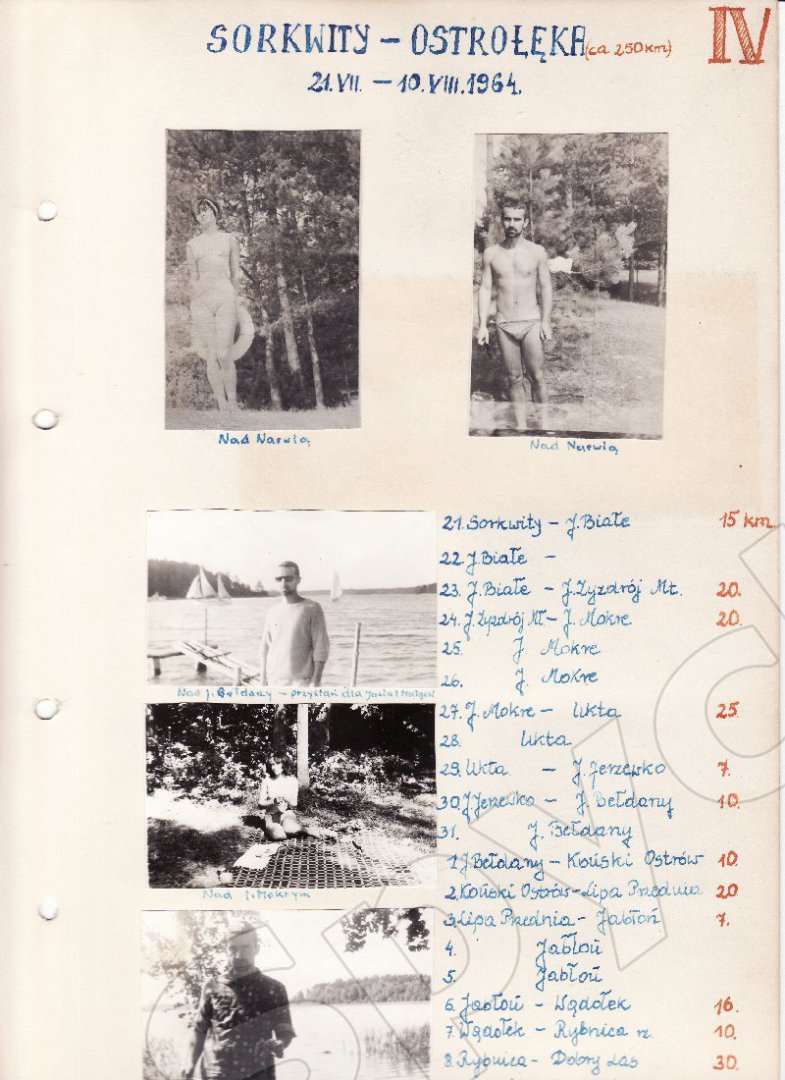 IV
SORKWITY – OSTROŁĘKA (ca 250 km)
21.VII. – 10.VIII.1964.
Nad Narwią
Nad Narwią
21. Sorkwity – J. Białe 15 km
22. J. Białe –
23. J. Białe – J. Zyzdrój Mt. 20.
24. J. Zyzdrój Mł – J. Mokre 20.
25. J. Mokre
26. J. Mokre
27. J. Mokre – Ukta 25.
28. Ukta
29. Ukta – J. Jerzewko 7.
30. J. Jerzewko – J. Bełdany 10.
31. J. Bełdany
1. J. Bełdany – Koński Ostrów 10.
2. Koński Ostrów – Lipa Przednia 20
3. Lipa Przednia – Jabłoń 7.
4. Jabłoń
5. Jabłoń
6. Jabłoń – Wądołek 16.
7. Wądołek – Rybnica rz. 10.
8. Rybnica – Dobry Las 30.
Nad J. Bełdany – przystań dla
Nad J. Mokrym